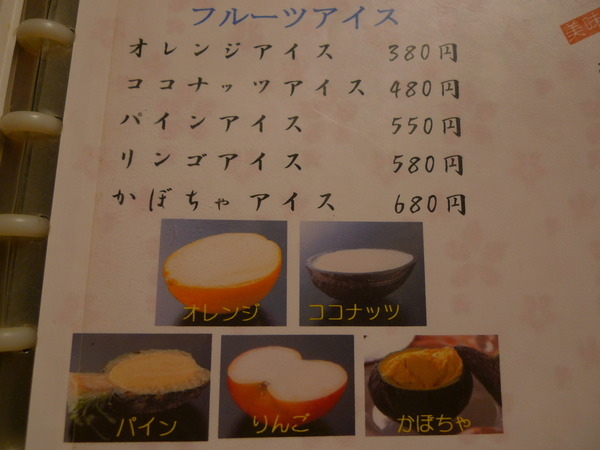 フルーツアイス
オレンジアイス 380円
ココナッツアイス 480円
パインアイス 550円
リンゴアイス 580円
かぼちゃアイス 680円
美味
オレンジ
ココナッツ
パイン
りんご
かぼちゃ